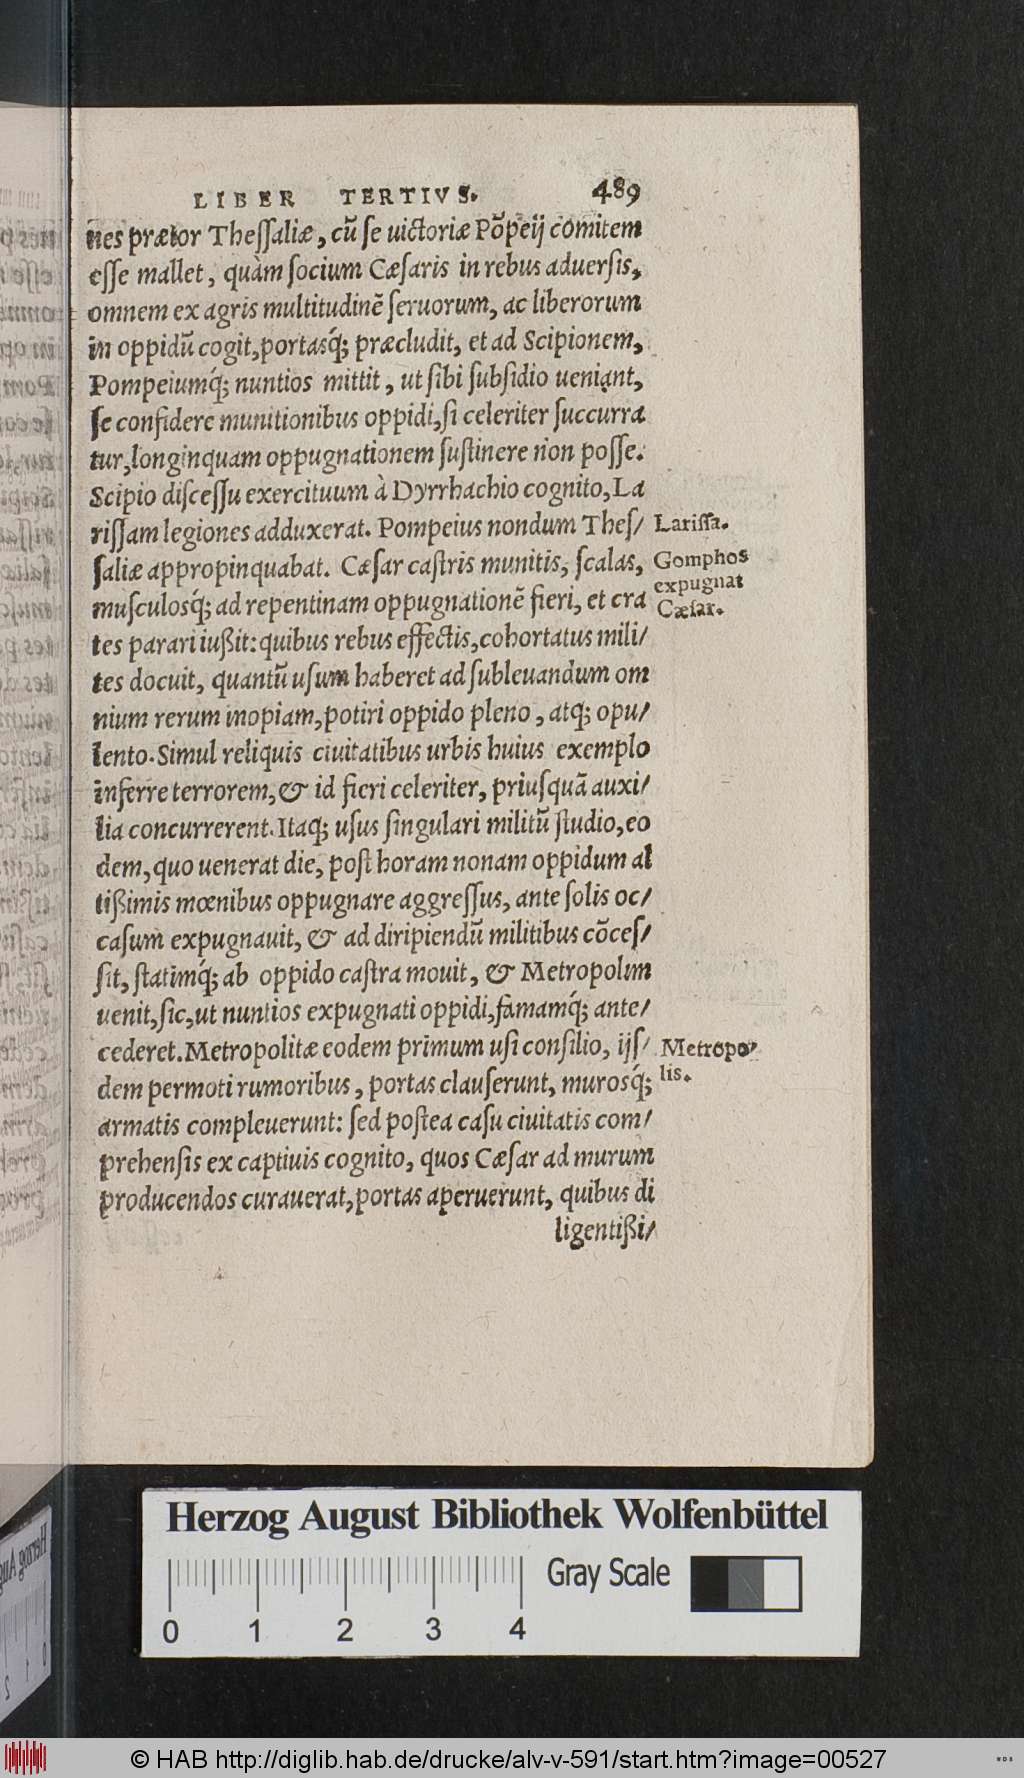 LIBER TERTIVS. 489
nes prætor Theſſaliæ, cū ſe uictoriæ Pōpeij comitem
eſſe mallet, quàm ſocium Cæſaris in rebus aduerſis,
omnem ex agris multitudinē ſeruorum, ac liberorum
in oppidū cogit, portasq́; præcludit, et ad Scipionem,
Pompeiumq́; nuntios mittit, ut ſibi ſubſidio ueniant,
ſe confidere munitionibus oppidi, ſi celeriter ſuccurra
tur, longinquam oppugnationem ſuſtinere non poſſe.
Scipio diſceſſu exercituum à Dyrrhachio cognito, La
riſſam legiones adduxerat. Pompeius nondum Theſ/
Lariſſa.
ſaliæ appropinquabat. Cæſar caſtris munitis, ſcalas,
Gomphos
expugnat
Cæſar.
muſculosq́; ad repentinam oppugnationē fieri, et cra
tes parari iußit: quibus rebus effectis, cohortatus mili/
tes docuit, quantū uſum haberet ad ſubleuandum om
nium rerum inopiam, potiri oppido pleno, atq; opu/
lento. Simul reliquis ciuitatibus urbis huius exemplo
inferre terrorem, & id fieri celeriter, priuſquā auxi/
lia concurrerent. Itaq; uſus ſingulari militū ſtudio, eo
dem, quo uenerat die, poſt horam nonam oppidum al
tißimis mœnibus oppugnare aggreſſus, ante ſolis oc/
caſum expugnauit, & ad diripiendū militibus cōceſ/
ſit, ſtatimq́; ab oppido caſtra mouit, & Metropolim
uenit, ſic, ut nuntios expugnati oppidi, famamq́; ante/
cederet. Metropolitæ eodem primum uſi conſilio, ijſ/
Metropo/
lis.
dem permoti rumoribus, portas clauſerunt, murosq́;
armatis compleuerunt: ſed poſtea caſu ciuitatis com/
prehenſis ex captiuis cognito, quos Cæſar ad murum
producendos curauerat, portas aperuerunt, quibus di
ligentißi/
Herzog August Bibliothek Wolfenbüttel
Gray Scale
0 1 2 3 4
© HAB http://diglib.hab.de/drucke/alv-v-591/start.htm?image=00527